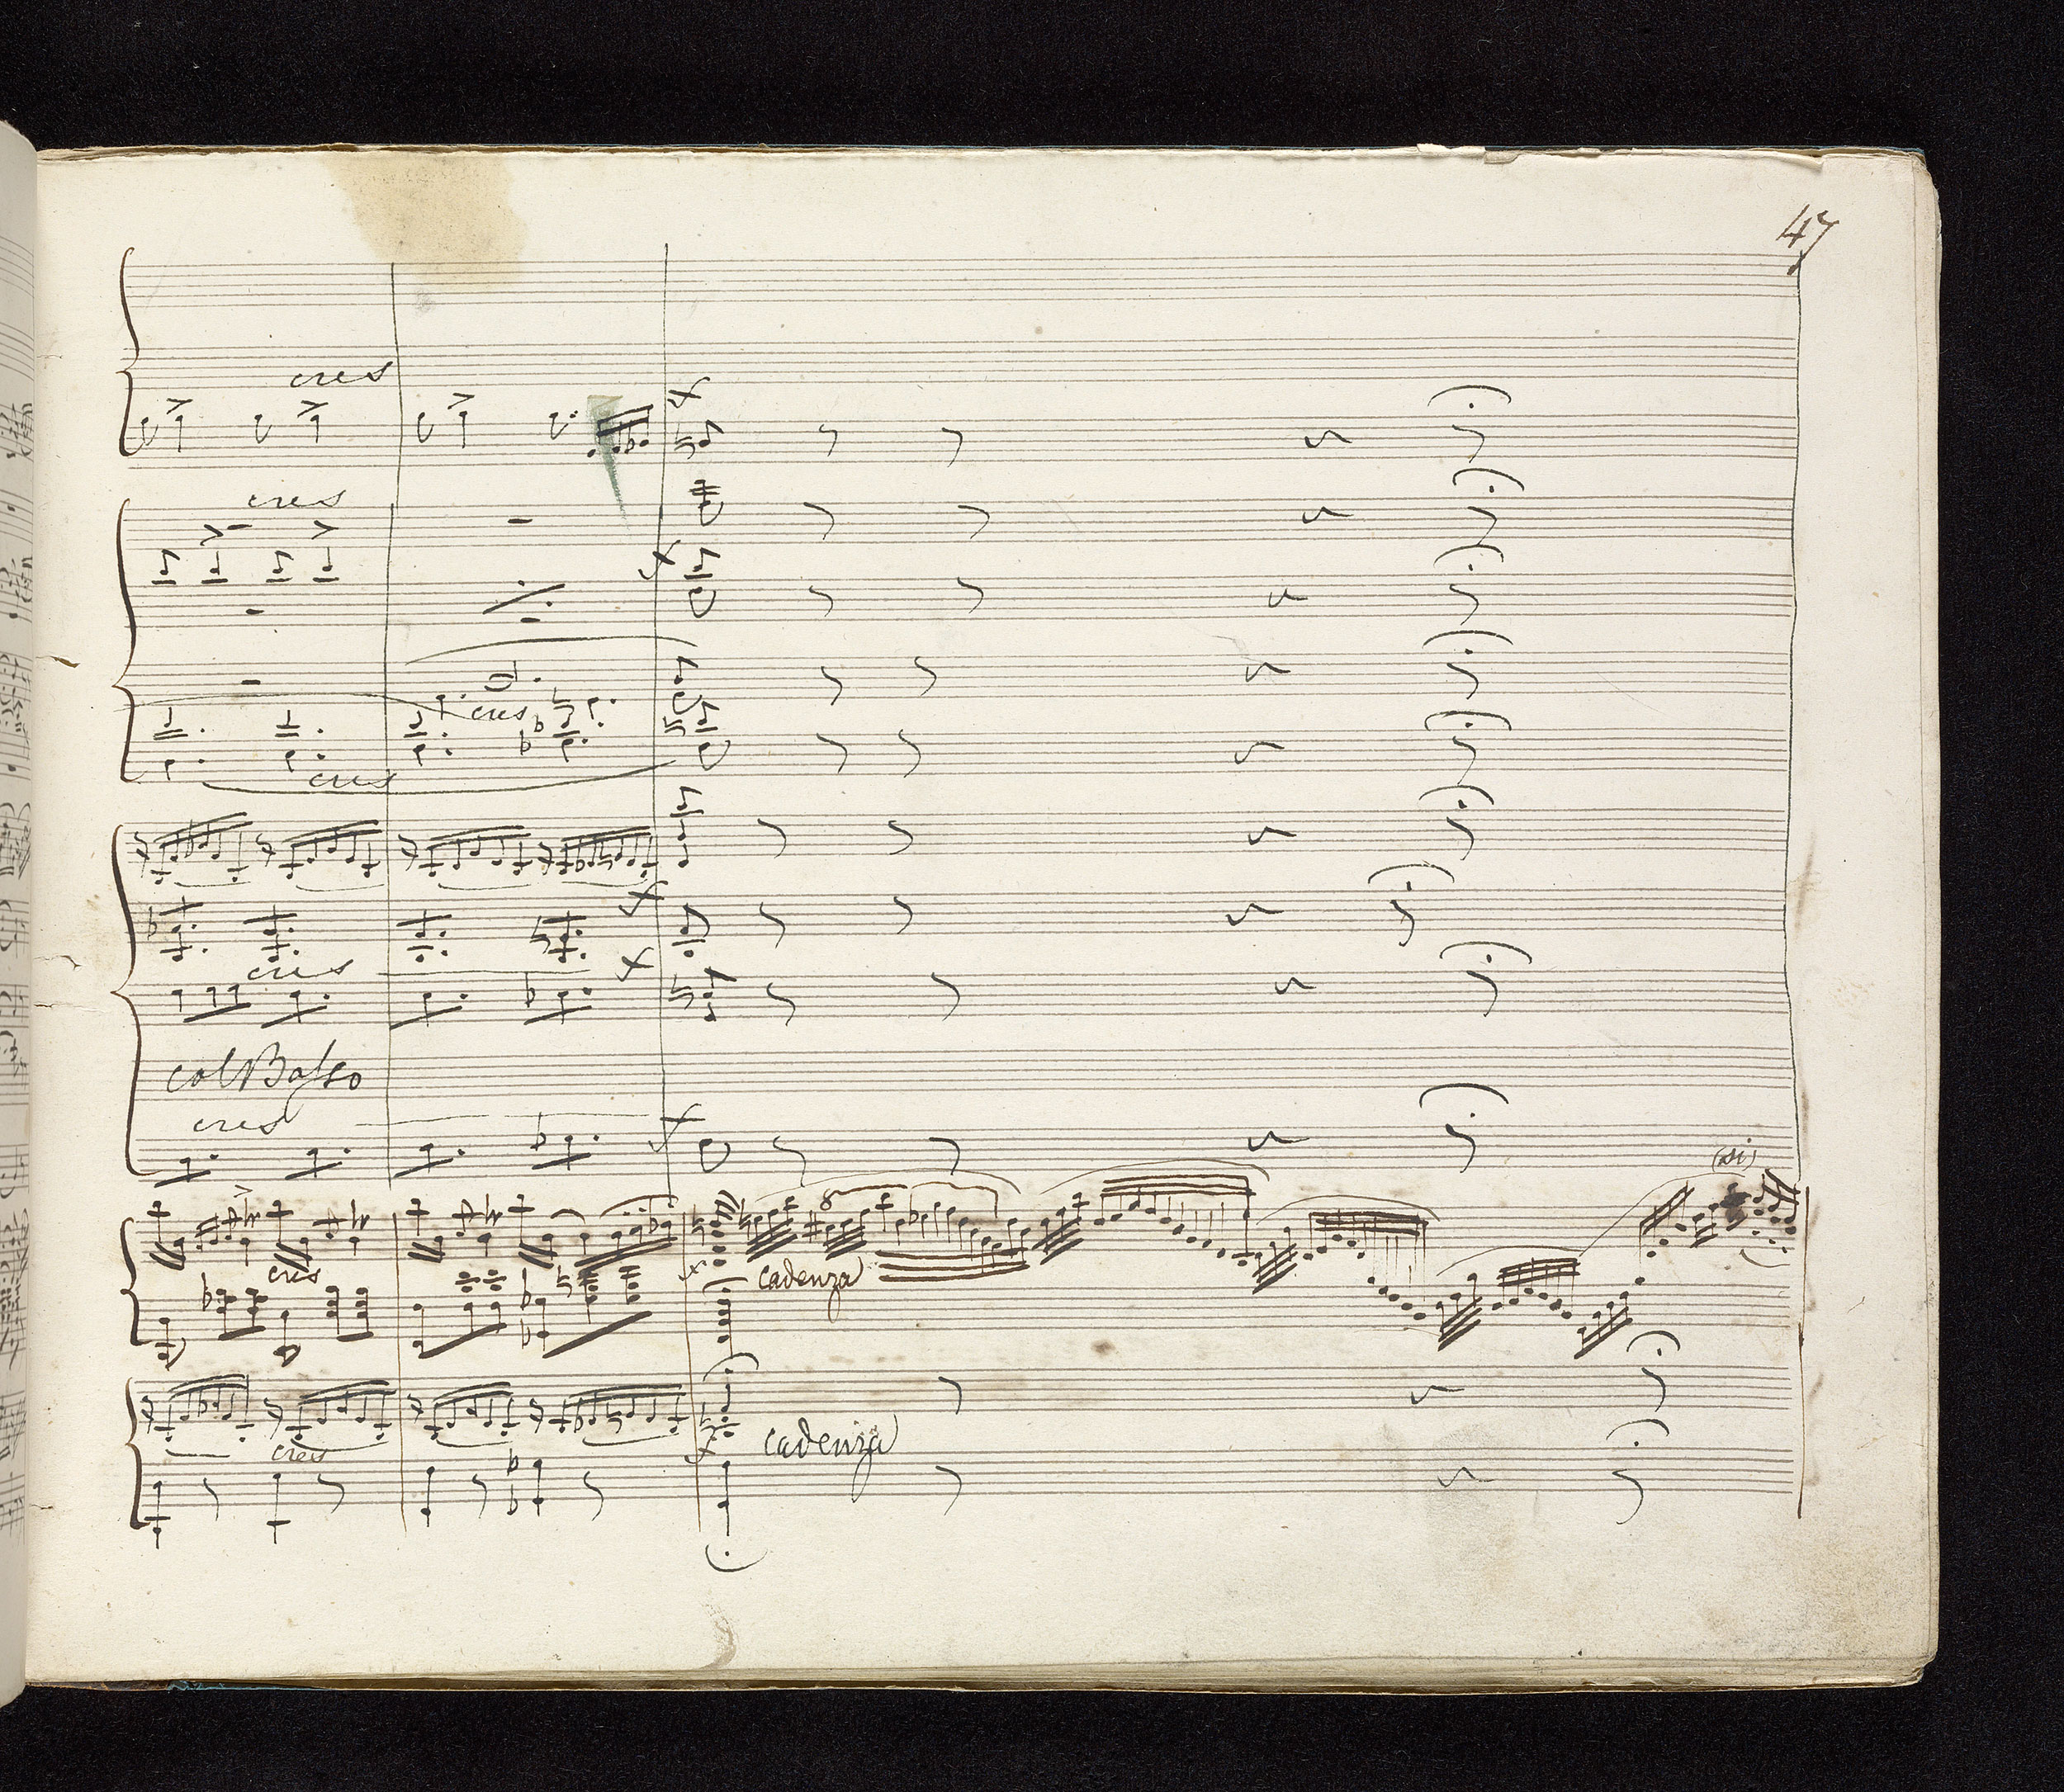 47
cres
cres
cres
cres
cres
col Basso
cres
(si)
cres
cadenza
8
cres
cadenza